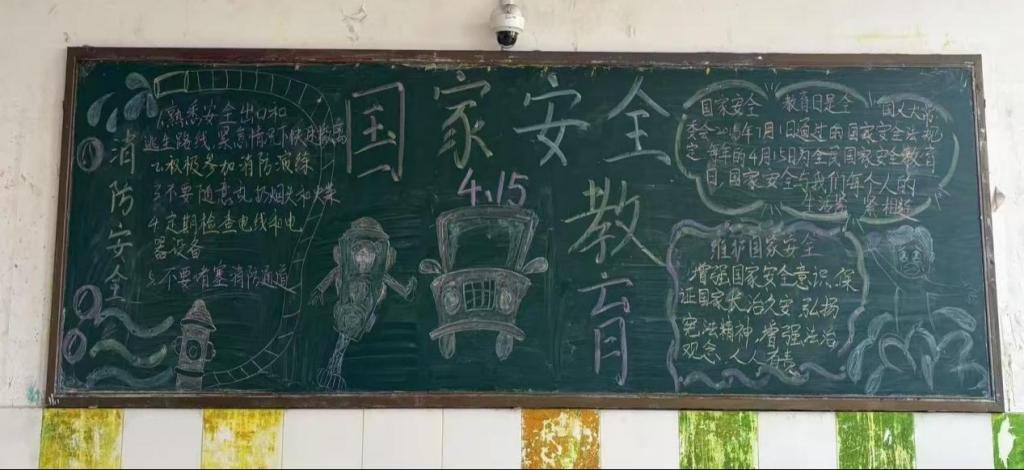 消防安全
1.熟悉安全出口和
逃生路线,紧急情况下快速撤离
2.积极参加消防演练
3.不要随意乱扔烟头和火柴
4.定期检查电线和电
器设备
5.不要堵塞消防通道
国家安全
教育
4.15
国家安全 教育日是全 国人大常
委会2015年7月1日通过的国家安全法规
定 每年的4月15日为全民国家安全教育
日,国家安全与我们每个人的
生活 紧相连
维护国家安全
增强国家安全意识,保
证国家长治久安,弘扬
宪法精神,增强法治
观念,人人有责